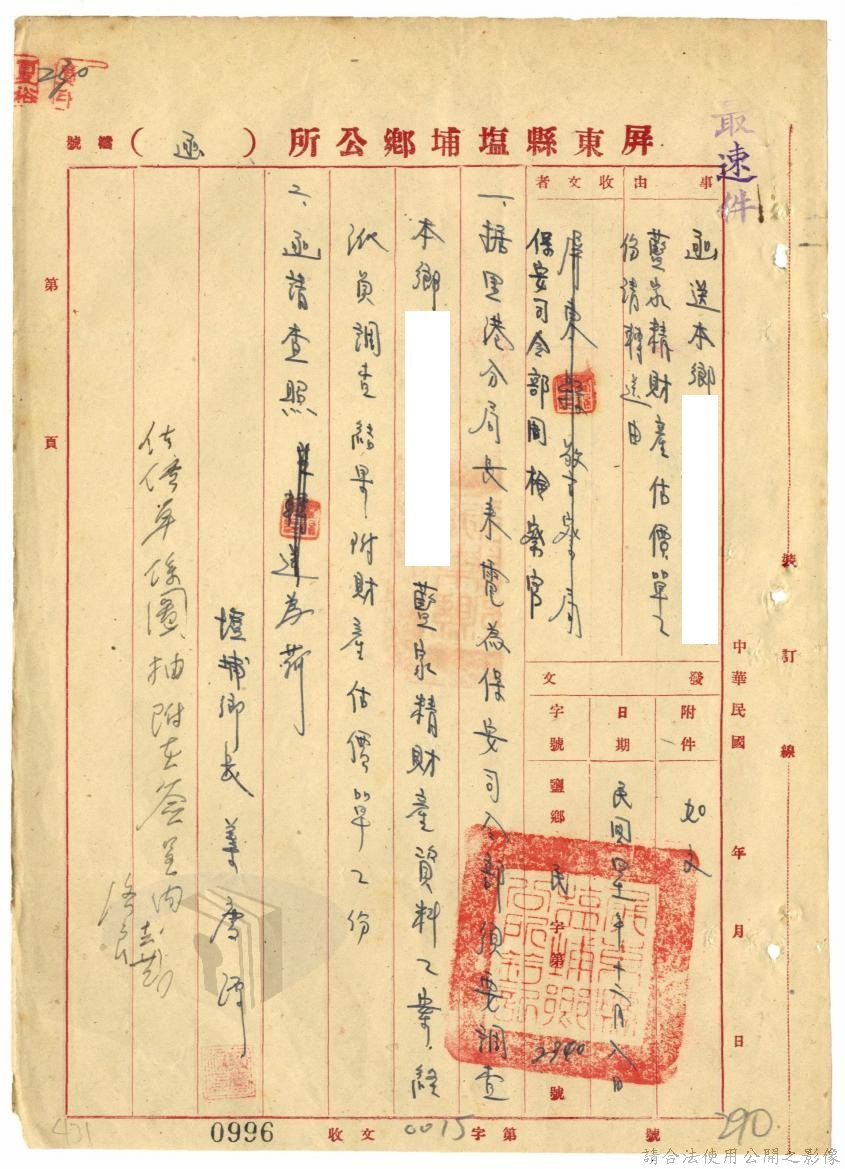 最速件
屏東縣塩埔鄉公所（函）
檔號
事由
函送本鄉
藍家精財產估價單乙
份請轉送由
收文者
屏東縣警察局
保安司令部周檢察官
發文
附件
如文
日期
字號
鹽鄉民字第2940號
一、據里港分局長來電為保安司令部須要調查
本鄉
藍家精財產資料乙案，經
派員調查結果附財產估價單乙份
二、函請查照並轉送為荷
塩埔鄉長
估價單係圖抽附在簽呈內
中華民國 年 月 日
裝訂線
第 頁
290
號
字第
0015
收文
0996
431
請合法使用公開之影像